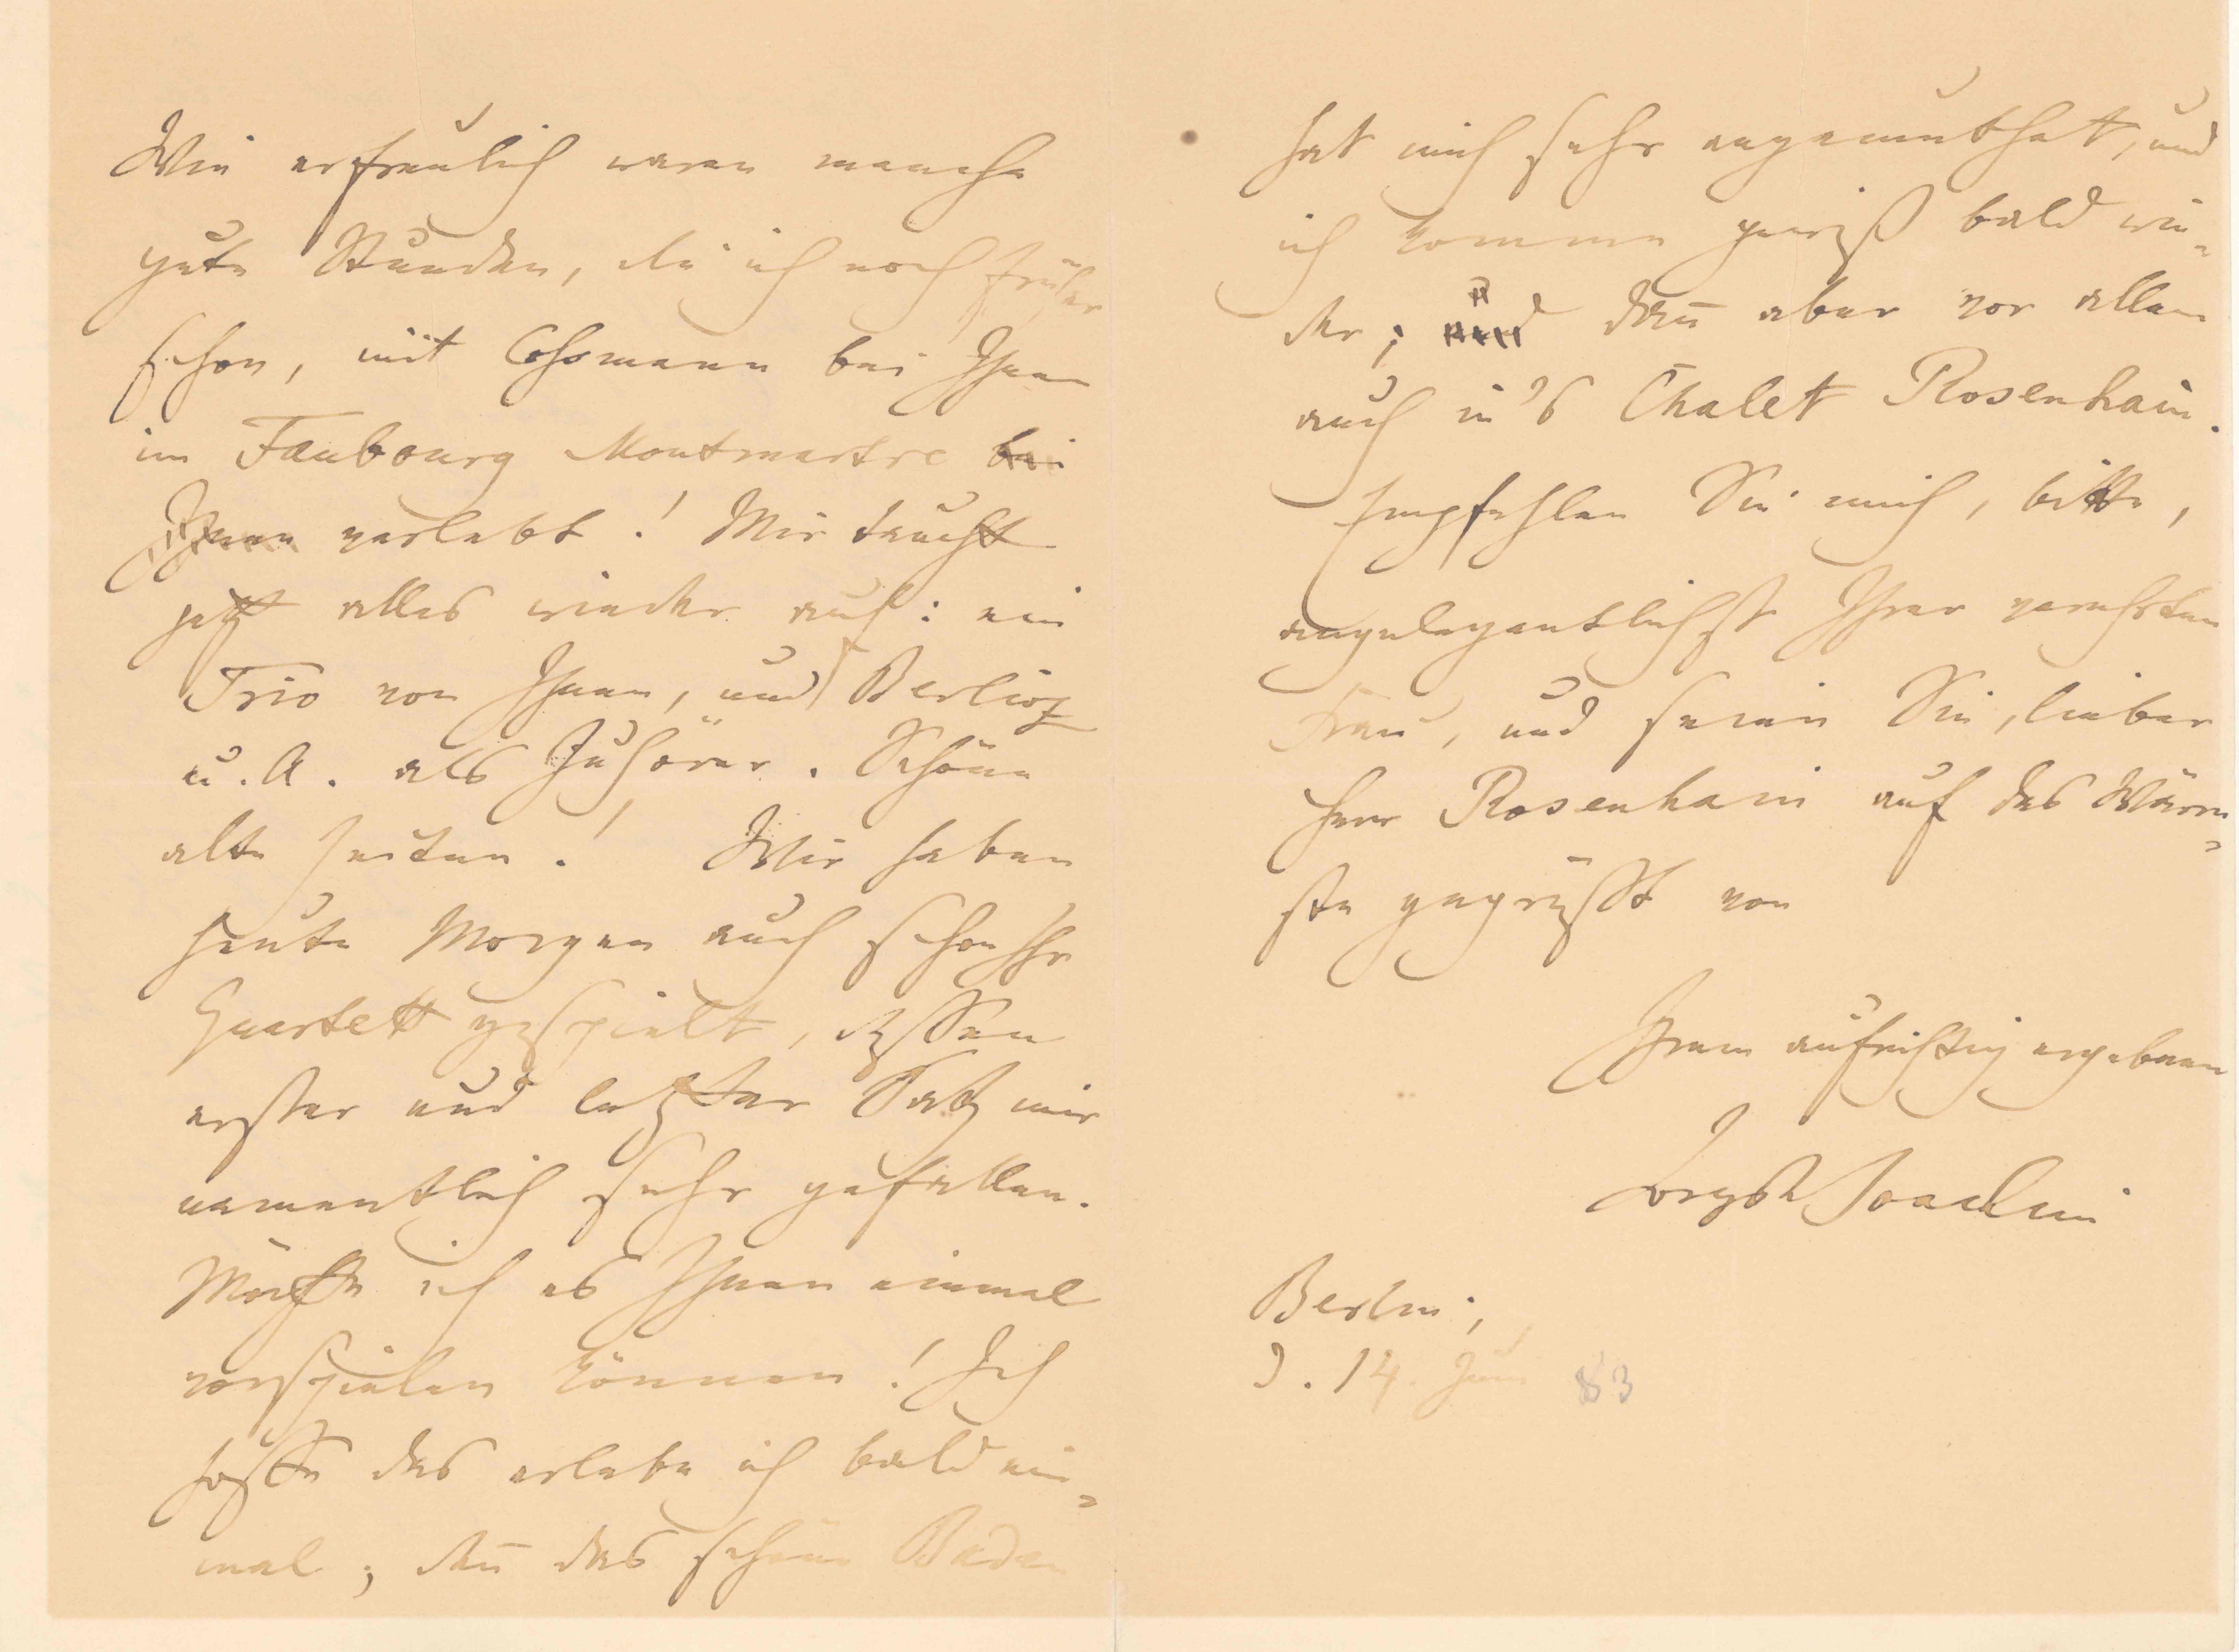 Wie erfreulich waren manche
gute Stunden, die ich noch früher
schon, mit Cossmann bei Ihnen
im Faubourg Montmartre bei
Ihnen verlebt! Mir taucht
jetzt alles wieder auf: ein
Trio von Ihnen, und Berlioz
u. A. als Zuhörer. Schöne
alte Zeiten! Wir haben
heute Morgen auch schon Ihr
Quartett gespielt, dessen
erster und letzter Satz mir
namentlich sehr gefallen.
Möchte ich es Ihnen einmal
vorspielen können! Ich
hoffe das erlebe ich bald ein-
mal; den̅ das schöne Baden
hat mich sehr angemuthet, und
ich komme gewiß bald wie-
der; dan̅ aber vor allem
auch in's Chalet Rosenhain.
Empfehlen Sie mich, bitte,
angelegentlichst Ihrer verehrten
Frau, und seien Sie, lieber
Herr Rosenhain auf das Wärm-
ste gegrüßt von
Ihrem aufrichtig ergebenen
Joseph Joachim
Berlin,
d. 14. Juni 83